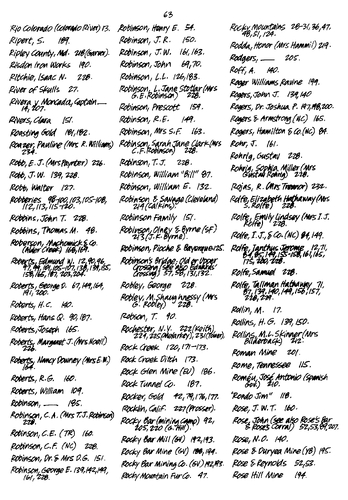 63
Rio Colorado (Colorado River) 13.
Ripert, S. 189.
Ripley County, Md. 218 (Garner).
Risdon Iron Works 190.
Ritchie, Isaac N. 228.
River of Skulls 27.
Rivera y Moncada, Captain
19, 207.
Rivers, Clara 151.
Roasting Gold 181, 182.
234.
Robb, E.J. (Mrs. Paynter) 226.
Robb, J.W. 139, 228.
Robb, Walter 127.
Robberies 98-100, 103, 105-108,
112, 113, 115-120.
Robbins, John T. 228.
Robbins, Thomas M. 48.
Roberts, George D. 67, 149, 169,
191, 200.
Roberts, H.C. 140.
Roberts, Hans Q. 90, 187.
Roberts, Joseph 165.
Roberts, Margaret J. (Mrs. Noell)
228.
Roberts, Nancy Downey (Mrs. E.W.)
164.
Roberts, R.G. 160.
Roberts, William 109.
Robinson, 185.
Robinson, C.A. (Mrs. T.J. Robinson)
228.
Robinson, C.E. (TR) 160.
Robinson, C.F. (NC) 228.
Robinson, Dr. & Mrs. D.G. 151.
Robinson, George E. 139, 142, 149,
161, 228.
Robinson, Harry E. 54.
Robinson, J.R. 150.
Robinson, J.W. 161, 163.
Robinson, John 69, 70.
Robinson, L.L. 126, 183.
Robinson, L. Jane Stotlar (Mrs.
G.E. Robinson) 228.
Robinson, Prescott 159.
Robinson, R.E. 149.
Robinson, Mrs. S.F. 163.
Robinson, Sarah Jane Clark (Mrs.
C.F. Robinson) 228.
Robinson, T.J. 228.
Robinson, William "Bill" 87.
Robinson, William E. 132.
Robinson & Savage (Cleveland)
Robinson Family 151.
Robinson, Olney & Byrne (SF)
213 (J.F. Byrne).
Robinson, Pioche & Bayerque 125.
Robinson's Bridge, Old or Upper
Crossing (See also Edwards'
Crossing) 37, 59, 131, 132.
Robley, George 228.
Robley, M. Shaughnessy (Mrs.
G. Robley) 228.
Robson, T. 90.
Rochester, N.Y. 221 (Keith),
Rock Creek 120, 171-173.
Rock Creek Ditch 173.
Rock Glen Mine (GV) 186.
Rock Tunnel Co. 187.
Rocker, Gold 42, 79, 176, 177.
Rocklin, Calif. 221 (Prosser).
Rocky Bar (mining camp) 92,
Rocky Bar Mill (GV) 192, 193.
Rocky Bar Mine (GV) 188, 194.
Rocky Bar Mining Co. (GV) 192, 193.
Rocky Mountain Fur Co. 97.
Rocky Mountains 28-31, 36, 47,
48, 51, 124.
Rodda, Honor (Mrs. Hamnil) 219.
Rodgers, 205.
Roff, A. 140.
Roger Williams Ravine 199.
Rogers, John J. 139, 140
Rogers, Dr. Joshua P. 197, 198, 200.
Rogers & Armstrong (NC) 165.
Rogers, Hamilton & Co (NC) 84.
Rohr, J. 161.
Rohrig, Gustal 228.
Rohrig, Sophia Miller (Mrs.
Gustal Rohrig) 228.
Rolfe, Elizabeth Hathaway (Mrs.
S. Rolfe) 228.
Rolfe, Emily Lindsey (Mrs. I.J.
Rolfe) 228.
Rolfe, I.J., & Co. (NC) 84, 149.
Rolfe, Ianthus Jerome 12, 71,
84, 85, 149, 155-158, 161, 165,
175, 200, 228.
Rolfe, Samuel 228.
Rolfe, Tallman Hathaway 71,
87, 139, 140, 149, 156, 157,
218, 229.
Rollin, M. 17.
Rollins, H.G. 139, 150.
Rollins, M.L. Skinner (Mrs.
Bilderback) 212.
Roman Mine 201.
Rome, Tennessee 115.
Romey, José Antonio (Spanish
"Rondo Jim" 118.
Rose, J.W.T. 160.
Rose, John (See also Rose's Bar
& Rose's Corral) 52, 53, 89, 207.
Rose, N.O. 140.
Rose & Duryea Mine (YB) 195.
Rose & Reynolds 52, 53.
Rose Hill Mine 194.